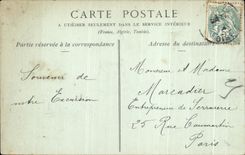 CARTE POSTALE
A UTILISER SEULEMENT DANS LE SERVICE INTÉRIEUR
(France, Algérie, Tunisie).
Partie réservée à la correspondance
Adresse du destinataire
Souvenir de
notre Excursion
Monsieur et Madame
Marcadier
Entrepreneur de Serrurerie
25 Rue Caumartin
Paris